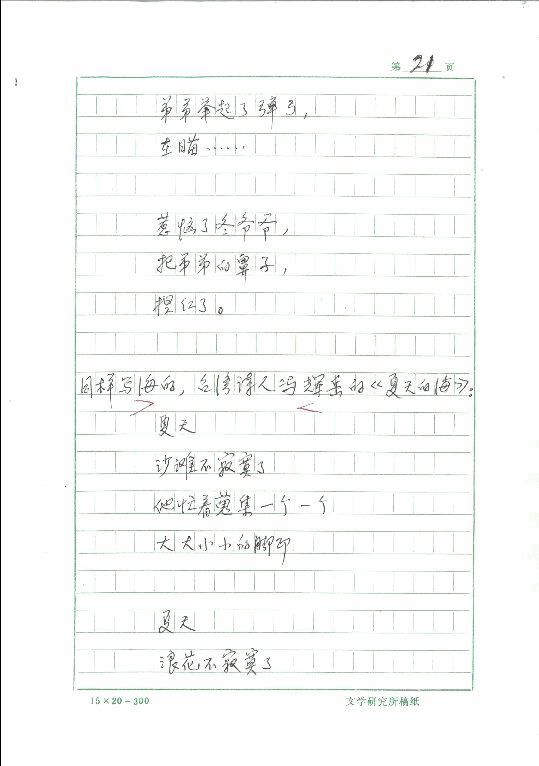 第 21 页
弟弟举起了弹弓，
在瞄……
惹恼了冬爷爷，
把弟弟的鼻子，
捏红了。
同样写海的，台湾诗人冯辉岳的《夏天的海》：
夏天
沙滩不寂寞了
他忙着蒐集一个一个
大大小小的脚印
夏天
浪花不寂寞了
15×20=300
文学研究所稿纸